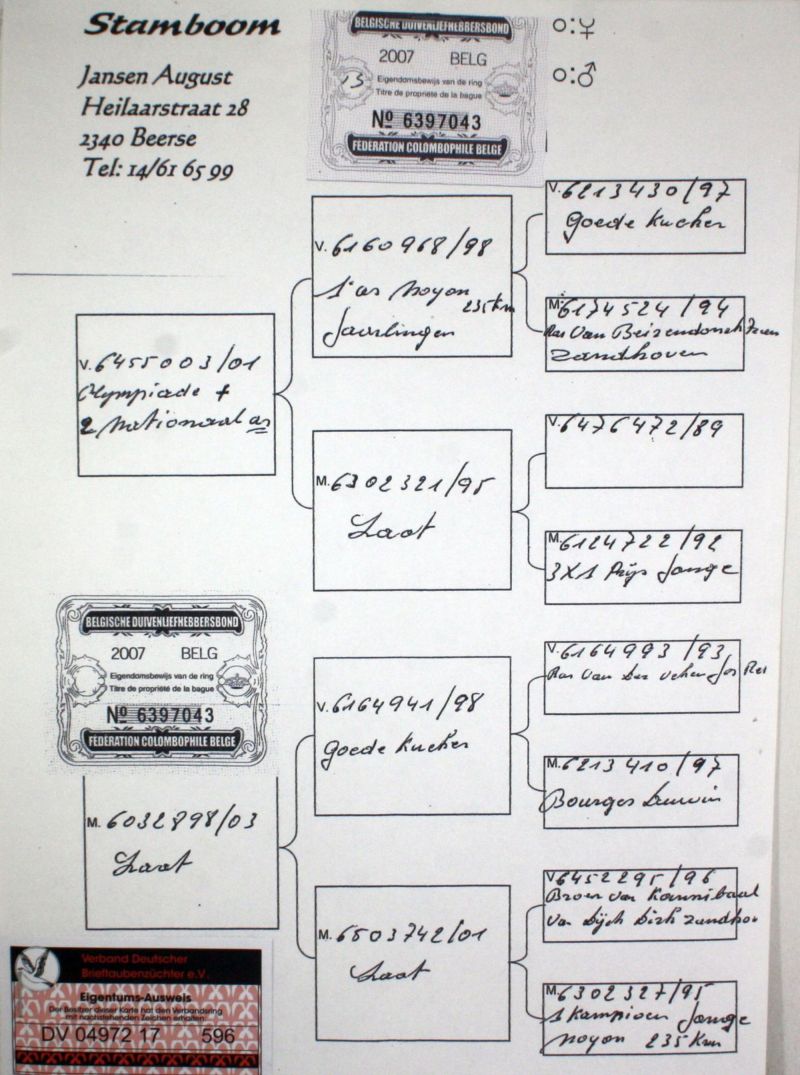 Stamboom
Jansen August
Heilaarstraat 28
2340 Beerse
Tel: 14/61 65 99
BELGISCHE DUIVENLIEFHEBBERSBOND
2007 BELG
Eigendomsbewijs van de ring
Titre de propriété de la bague
15
Nº 6397043
FEDERATION COLOMBOPHILE BELGE
o:♀
o:♂
V. 6213430/97
Goede Kucher
V. 6160968/98
1e as Noyon
235 km
Jaarlingen
M. 6174524/94
Ras Van Beirendonck
Zandhoven
V. 6455003/01
Olympiade +
2 Nationaal as
V. 6476472/89
M. 6302321/95
Laat
M. 6124722/92
3X1 Prijs Jonge
BELGISCHE DUIVENLIEFHEBBERSBOND
2007 BELG
Eigendomsbewijs van de ring
Titre de propriété de la bague
Nº 6397043
FEDERATION COLOMBOPHILE BELGE
V. 6164993/93
Ras Van Der Veken Jos
V. 6164941/98
Goede Kucher
M. 6213410/97
Bourges Duivin
M. 6032898/03
Laat
V. 6452295/96
Broer van Kannibaal
Van Dijck Dirk Zandho
M. 6503742/01
Laat
M. 6302327/95
1 Kampioen Jonge
Noyon 235 Km
Verband Deutscher
Brieftaubenzüchter e.V.
Eigentums-Ausweis
Der Besitzer dieser Karte hat den Verbandsring
mit nachstehenden Zeichen erhalten:
DV 04972 17 596